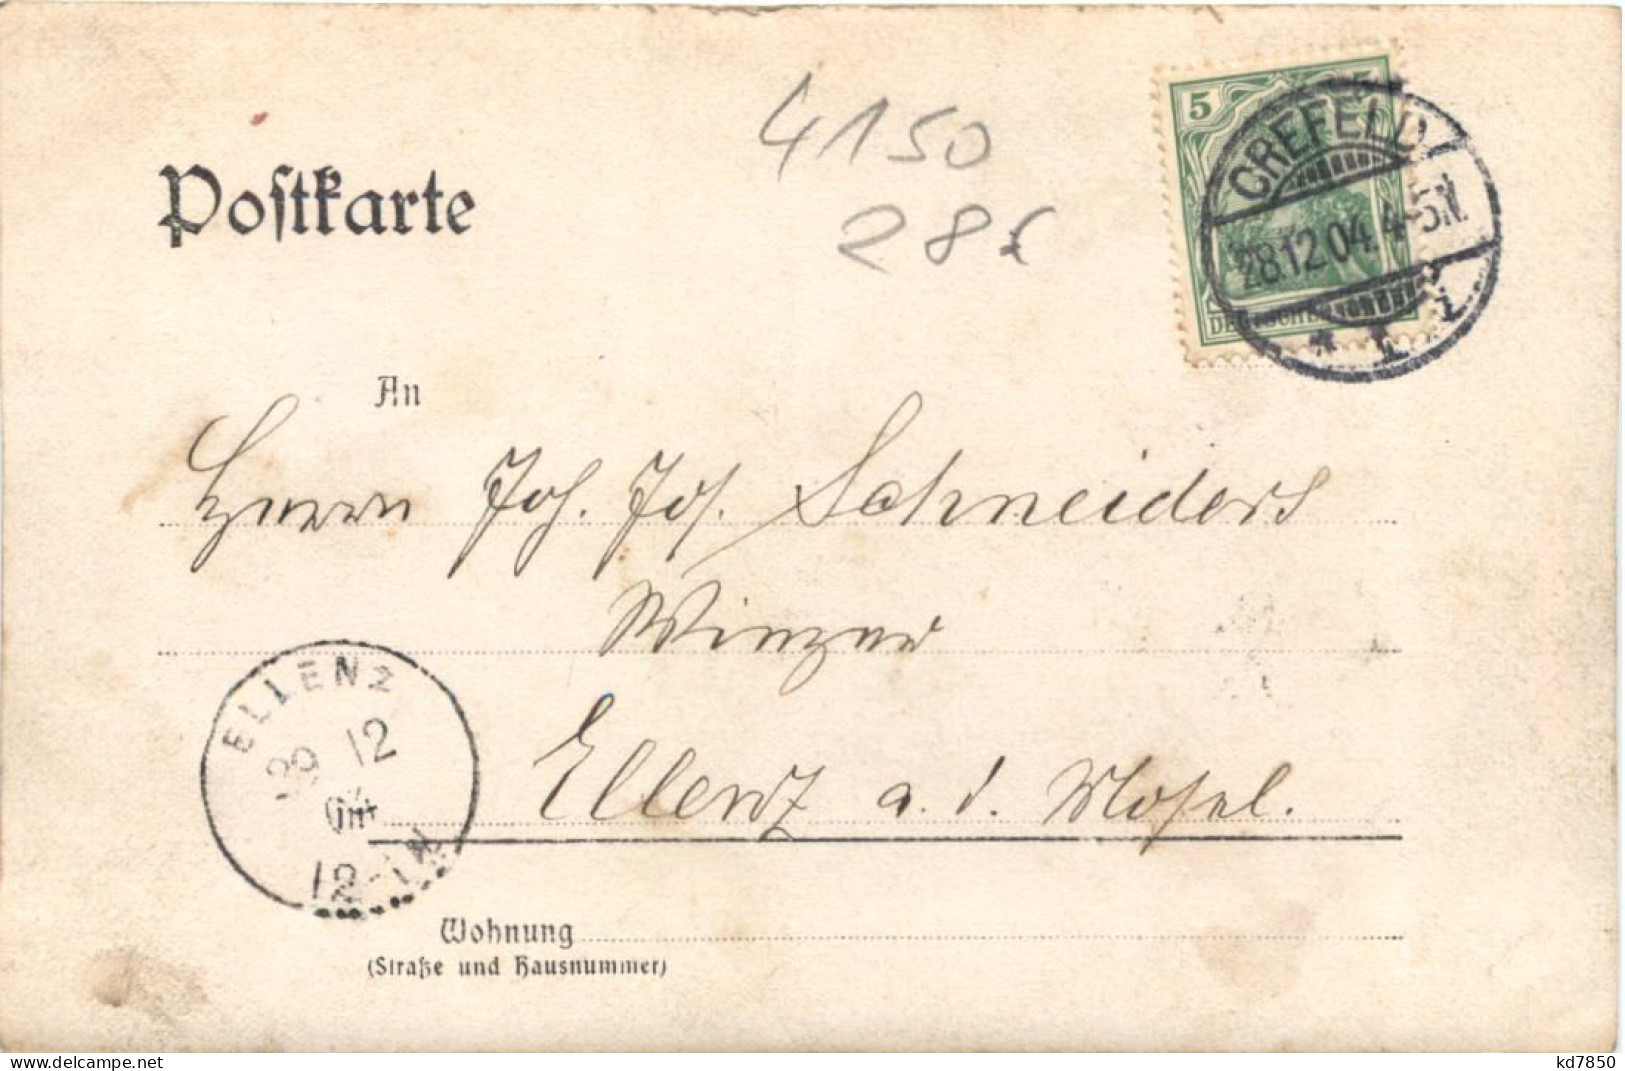 Postkarte
4150
28
5
CREFELD
28.12.04.4-5N.
* 1 i
DEUTSCHES
An
Herrn Joh. Jos. Schneiders
Winzer
Ellenz a. d. Mosel.
ELLENZ
12
04
12-1N
Wohnung
(Straße und Hausnummer)
www.delcampe.net
kd7850